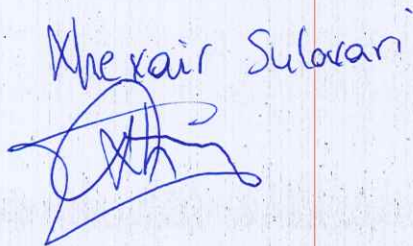 Xhexair Sulovari